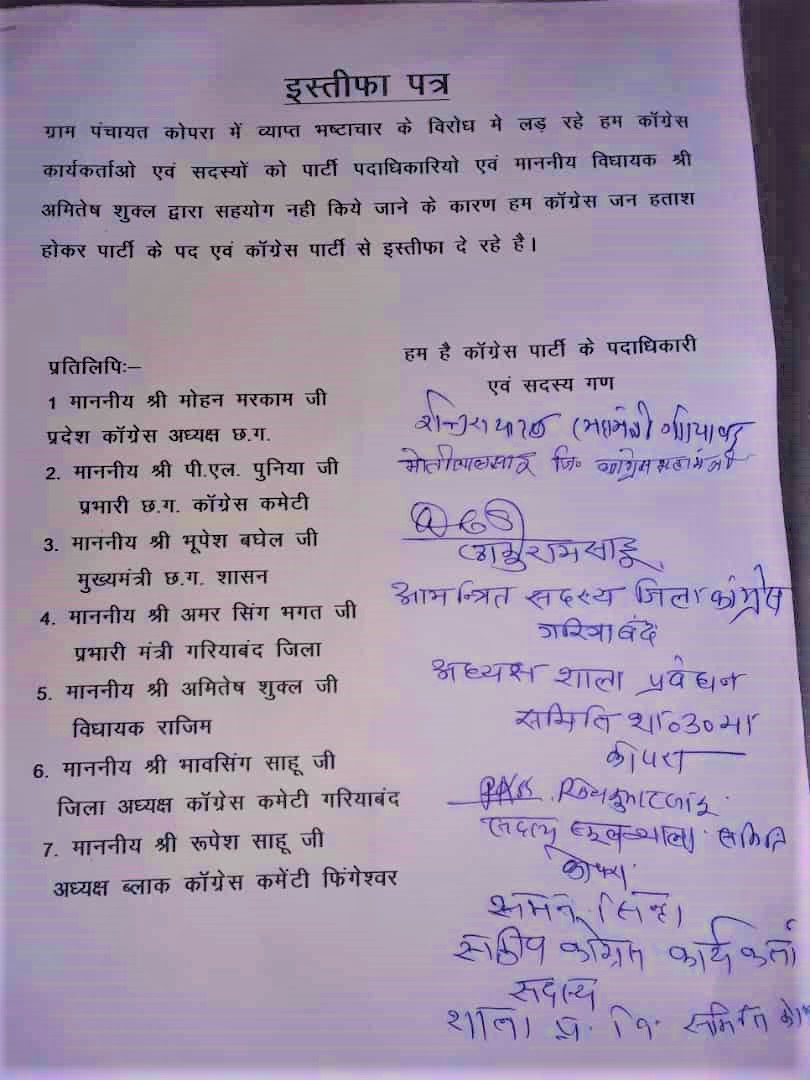 इस्तीफा पत्र
ग्राम पंचायत कोपरा में व्याप्त भष्टाचार के विरोध मे लड़ रहे हम कॉग्रेस
कार्यकर्ताओ एवं सदस्यों को पार्टी पदाधिकारियो एवं माननीय विधायक श्री
अमितेष शुक्ल द्वारा सहयोग नही किये जाने के कारण हम कॉग्रेस जन हताश
होकर पार्टी के पद एवं कॉग्रेस पार्टी से इस्तीफा दे रहे है।
प्रतिलिपिः–
1 माननीय श्री मोहन मरकाम जी
प्रदेश कॉग्रेस अध्यक्ष छ.ग.
2. माननीय श्री पी.एल. पुनिया जी
प्रभारी छ.ग. कॉग्रेस कमेटी
3. माननीय श्री भूपेश बघेल जी
मुख्यमंत्री छ.ग. शासन
4. माननीय श्री अमर सिंग भगत जी
प्रभारी मंत्री गरियाबंद जिला
5. माननीय श्री अमितेष शुक्ल जी
विधायक राजिम
6. माननीय श्री भावसिंग साहू जी
जिला अध्यक्ष कॉग्रेस कमेटी गरियाबंद
7. माननीय श्री रूपेश साहू जी
अध्यक्ष ब्लाक कॉग्रेस कमेंटी फिंगेश्वर
हम है कॉग्रेस पार्टी के पदाधिकारी
एवं सदस्य गण
मोतीलाल साहू जि०
आमन्त्रित सदस्य जिला कांग्रेस
गरियाबंद
अध्यक्ष शाला प्रबंधन
समिति शा०उ०मा
कोपरा
सदस्य समिति
कोपरा
सिन्हा
कांग्रेस कार्यकर्ता
सदस्य
शाला प्र. वि. समिति